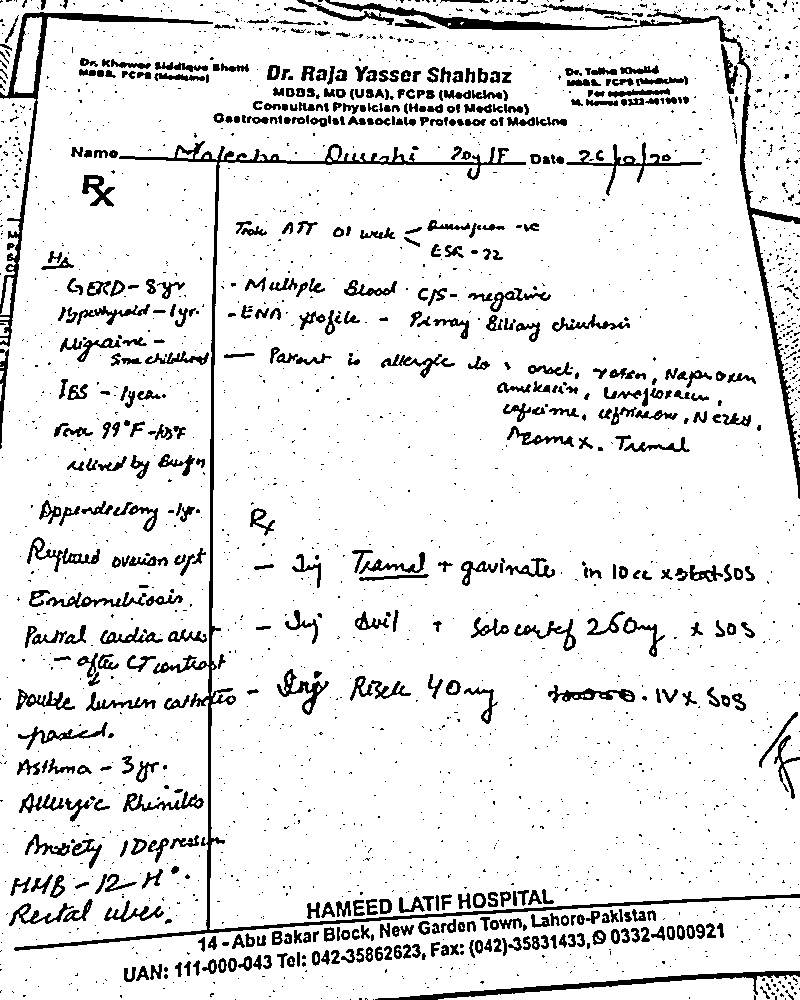 Dr. Khawer Siddique Bhatti
MBBS, FCPS (Medicine)
Dr. Raja Yasser Shahbaz
MBBS, MD (USA), FCPS (Medicine)
Consultant Physician (Head of Medicine)
Gastroenterologist Associate Professor of Medicine
Dr. Talha Khalid
MBBS, FCPS (Medicine)
For appointment
Name Maleeha Qureshi 20y/F Date 26/10/20
Rx
Hx
GERD - 8yr
Hyperthyroid - 1yr.
Migraine -
Since childhood
IBS - 1year.
Fever 99°F -
relieved by Brufen
Appendectomy - 1yr.
Ruptured ovarian cyst
Endometriosis
Partial cardia arrest
- after CT contrast
Double lumen catheter
passed.
Asthma - 3yr.
Allergic Rhinitis
Anxiety / Depression
HMB - 12
Rectal ulcer.
Took ATT 01 week -ve
ESR - 22
- Multiple Blood C/S - negative
- ENA profile - Primary Biliary cirrhosis
- Patient is allergic to onset, Naproxen
amikacin, levofloxacin,
Tramal
Rx
- Inj Tramal + gavinate in 10cc x stat SOS
- Inj Avil + Solocortef 250mg x SOS
- Inj Risek 40mg IV x SOS
HAMEED LATIF HOSPITAL
14 - Abu Bakar Block, New Garden Town, Lahore-Pakistan
UAN: 111-000-043 Tel: 042-35862623, Fax: (042)-35831433, 0332-4000921